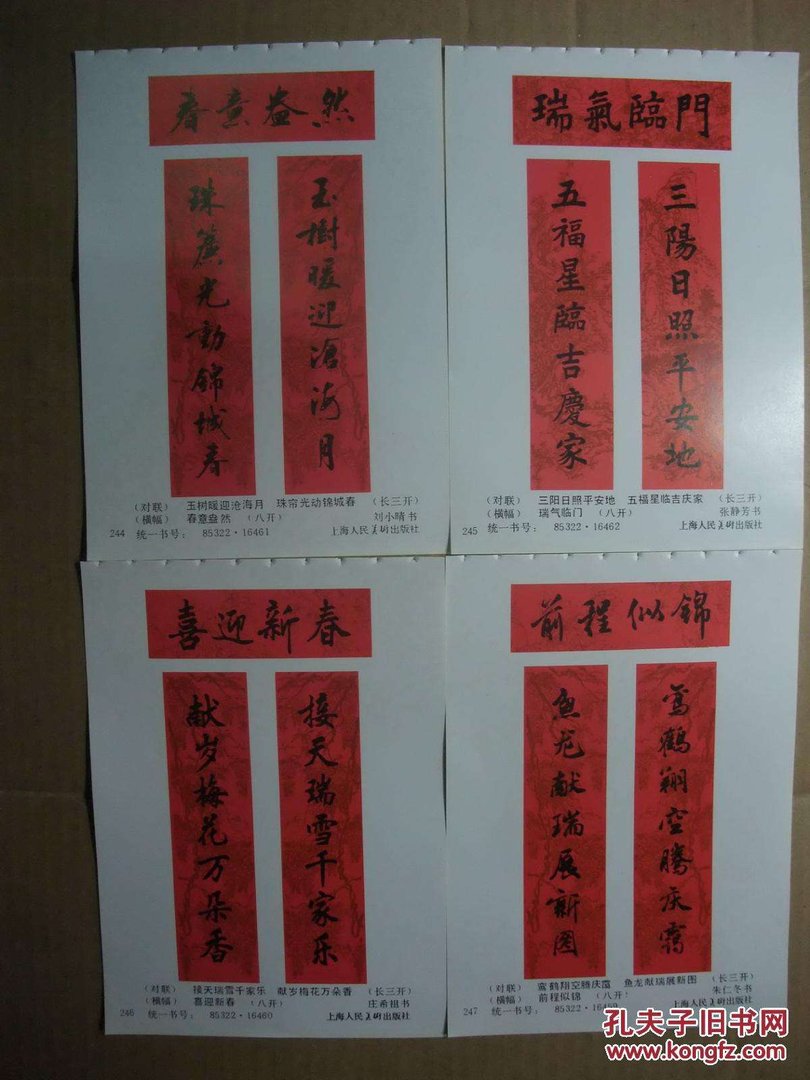 春意盎然
玉樹暖迎滄海月
珠簾光動錦城春
(对联) 玉树暖迎沧海月 珠帘光动锦城春 (长三开)
(横幅) 春意盎然 (八开) 刘小晴书
244 统一书号: 85322·16461 上海人民美術出版社
瑞氣臨門
三陽日照平安地
五福星臨吉慶家
(对联) 三阳日照平安地 五福星临吉庆家 (长三开)
(横幅) 瑞气临门 (八开) 张静芳书
245 统一书号: 85322·16462 上海人民美術出版社
喜迎新春
接天瑞雪千家乐
献岁梅花万朵香
(对联) 接天瑞雪千家乐 献岁梅花万朵香 (长三开)
(横幅) 喜迎新春 (八开) 庄希祖书
246 统一书号: 85322·16460 上海人民美術出版社
前程似锦
鸾鹤翔空腾庆霭
鱼龙献瑞展新图
(对联) 鸾鹤翔空腾庆霭 鱼龙献瑞展新图 (长三开)
(横幅) 前程似锦 (八开) 朱仁冬书
247 统一书号: 85322·16459 上海人民美術出版社
孔夫子旧书网
www.kongfz.com